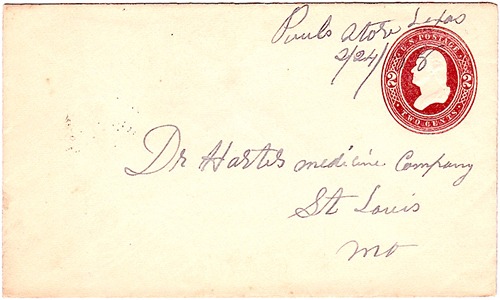 Pauls Store Texas
2/24/ 8
U.S. POSTAGE
2 2
TWO CENTS
Dr Harters medicine Company
St Louis
Mo